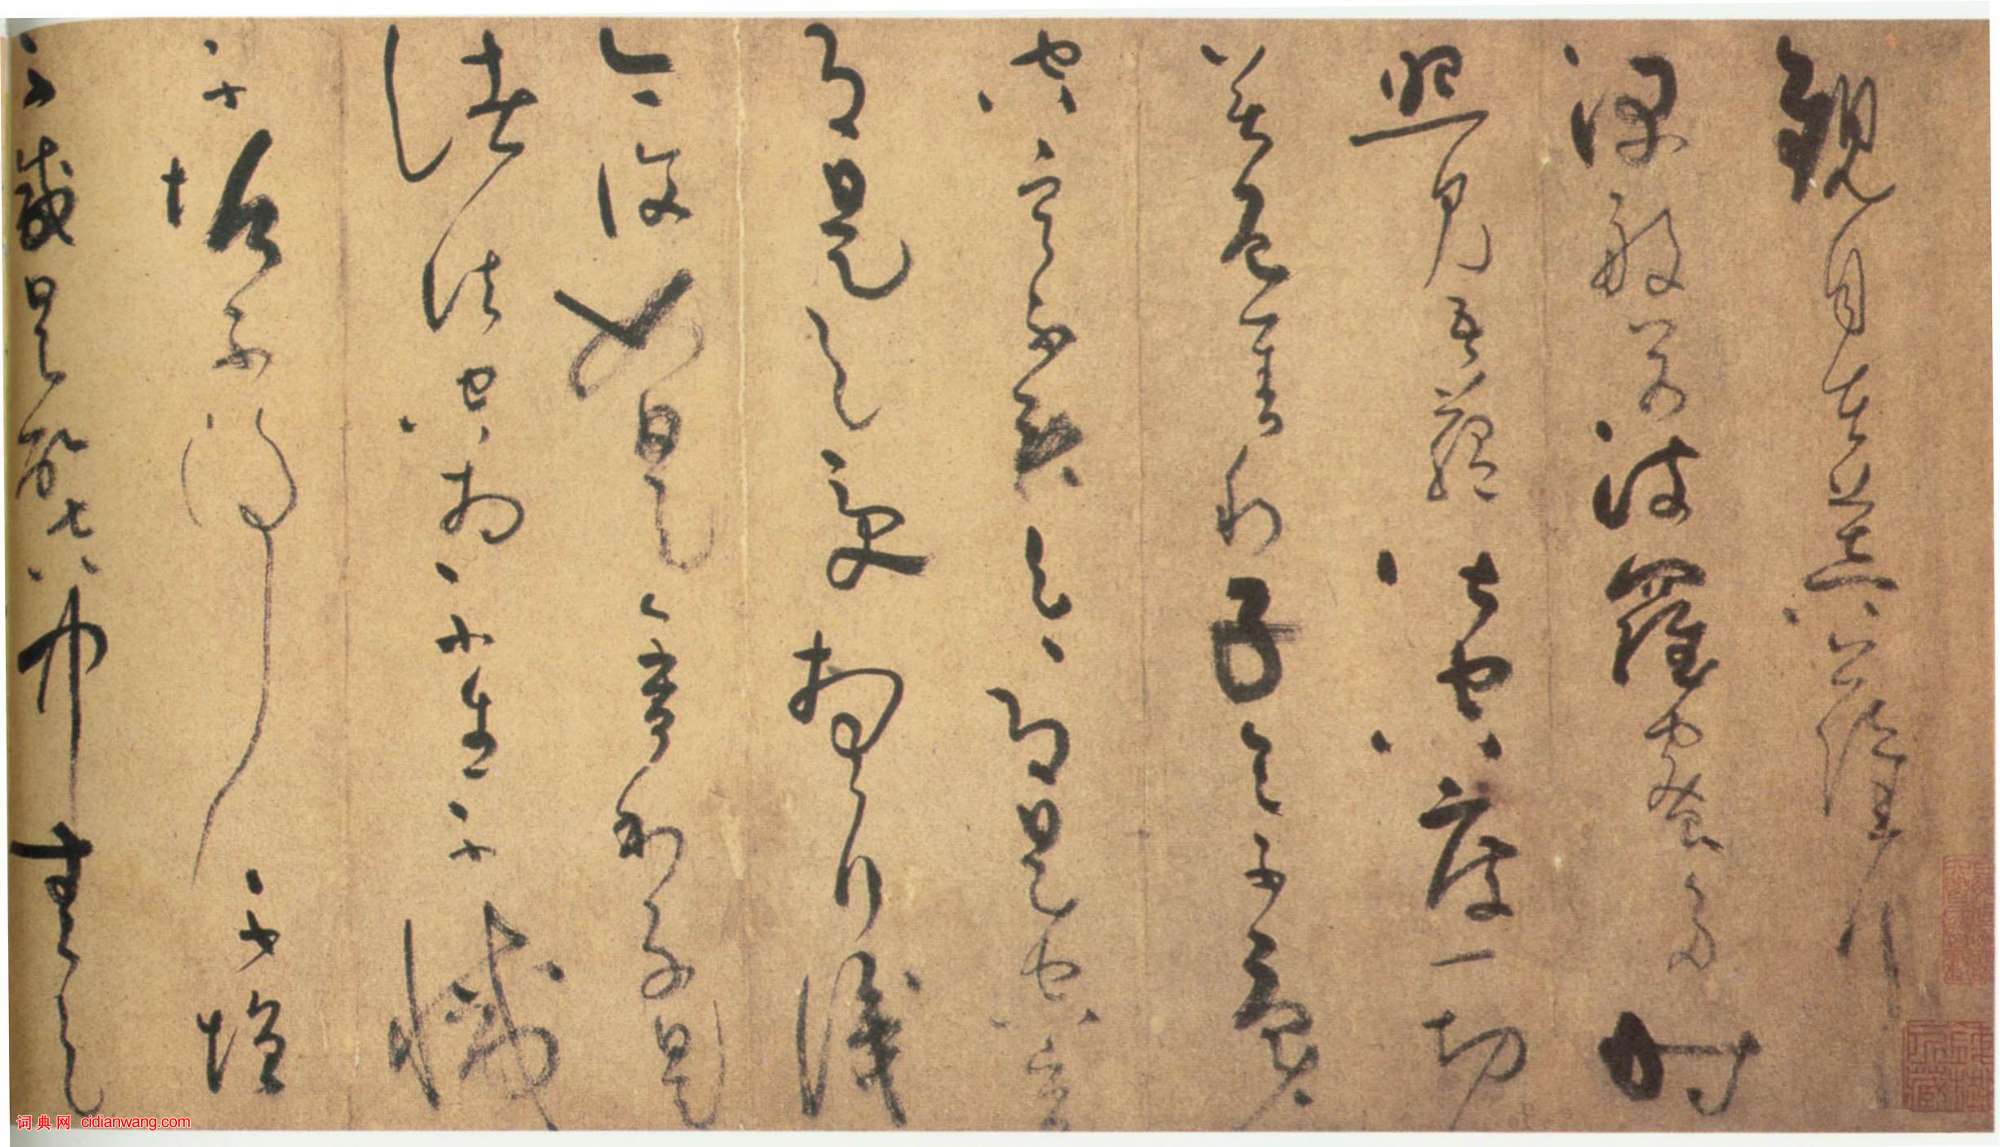 觀自在菩薩行
深般若波羅蜜多時
照見五蘊皆空度一切
苦厄舍利子色不異
空空不異色色即是空空
即是色受想行識
亦復如是舍利子是
諸法空相不生不滅
不垢不淨不增
不減是故空中無色
词典网 cidianwang.com